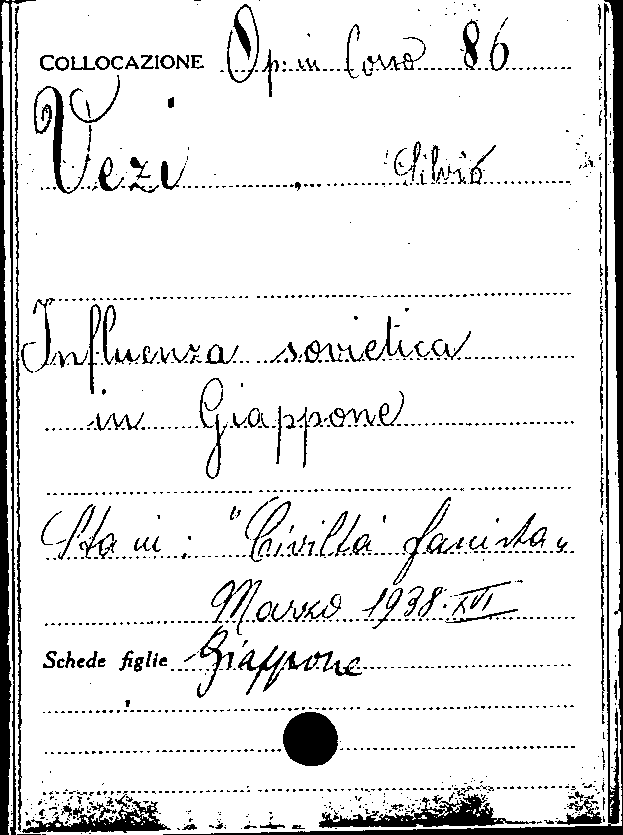 COLLOCAZIONE Op. in Corso 86
Vezi , Silvio
Influenza sovietica
in Giappone
Sta in: "Civiltà fascista„
Marzo 1938. XVI
Schede figlie Giappone